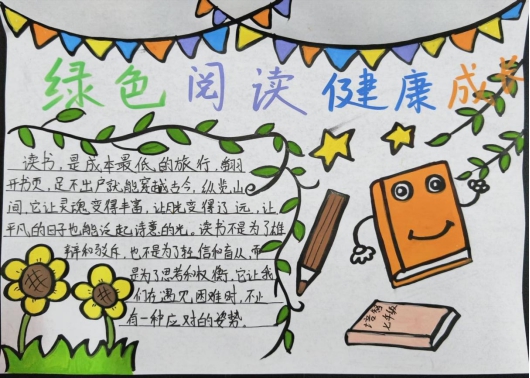 绿色阅读 健康成长
读书,是成本最低的旅行,翻
开书页,足不出户就能穿越古今,纵览山
间,它让灵魂变得丰富,让目光变得辽远,让
平凡的日子也能泛起诗意的光。读书不是为了雄
辩和驳斥,也不是为了轻信和盲从,而
是为了思考和权衡,它让我
们在遇见困难时,不止
有一种应对的姿势。
七年级